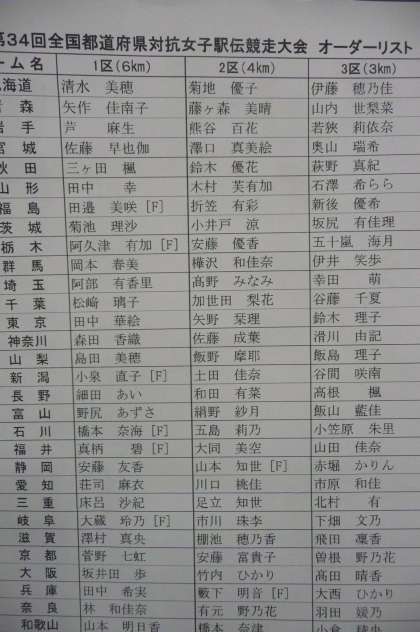 第34回全国都道府県対抗女子駅伝競走大会 オーダーリスト
ーム名 1区(6km) 2区(4km) 3区(3km)
海道 清水 美穂 菊地 優子 伊藤 穂乃佳
森 矢作 佳南子 藤ヶ森 美晴 山内 世梨菜
手 芦 麻生 熊谷 百花 若狭 莉依奈
宮城 佐藤 早也伽 澤口 真美絵 奥山 瑞希
秋田 三ヶ田 楓 鈴木 優花 萩野 真紀
山形 田中 幸 木村 芙有加 石澤 希らら
福島 田邉 美咲 [F] 折笠 有彩 新後 優希
茨城 菊池 理沙 小井戸 涼 坂尻 有佳理
栃木 阿久津 有加 [F] 安藤 優香 五十嵐 海月
群馬 岡本 春美 樺沢 和佳奈 伊井 笑歩
埼玉 阿部 有香里 髙野 みなみ 幸田 萌
千葉 松﨑 璃子 加世田 梨花 谷藤 千夏
東京 田中 華絵 矢野 栞理 鈴木 理子
神奈川 森田 香織 佐藤 成葉 滑川 由記
山梨 島田 美穂 飯野 摩耶 飯島 理子
新潟 小泉 直子 [F] 土田 佳奈 谷間 咲南
長野 細田 あい 和田 有菜 高根 楓
富山 野尻 あずさ 絹野 紗月 飯山 藍佳
石川 橋本 奈海 [F] 五島 莉乃 小笠原 朱里
福井 真柄 碧 [F] 大同 美空 山田 佳奈
静岡 安藤 友香 山本 知世 [F] 赤堀 かりん
愛知 荘司 麻衣 川口 桃佳 市原 和佳
三重 床呂 沙紀 足立 知世 北村 有
岐阜 大蔵 玲乃 [F] 市川 珠李 下畑 文乃
滋賀 澤村 真央 棚池 穂乃香 飛田 凜香
京都 菅野 七虹 安藤 富貴子 曽根 野乃花
大阪 坂井田 歩 竹内 ひかり 高田 晴香
兵庫 田中 希実 籔下 明音 [F] 大西 ひかり
奈良 林 和佳奈 有元 野乃花 羽田 媛乃
和歌山 山本 明日香 橋本 奈津 小倉 稜央